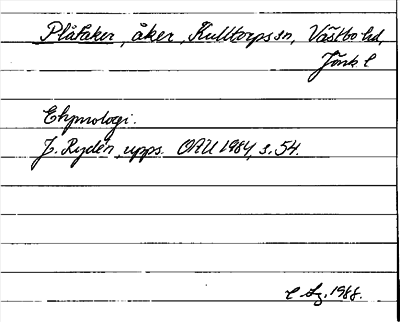 Plåtaker, åker, Kulltorps sn, Västbo hd,
Jönk. l
Etymologi.
J. Rydén, upps. OAU 1984, s. 54.
1988.